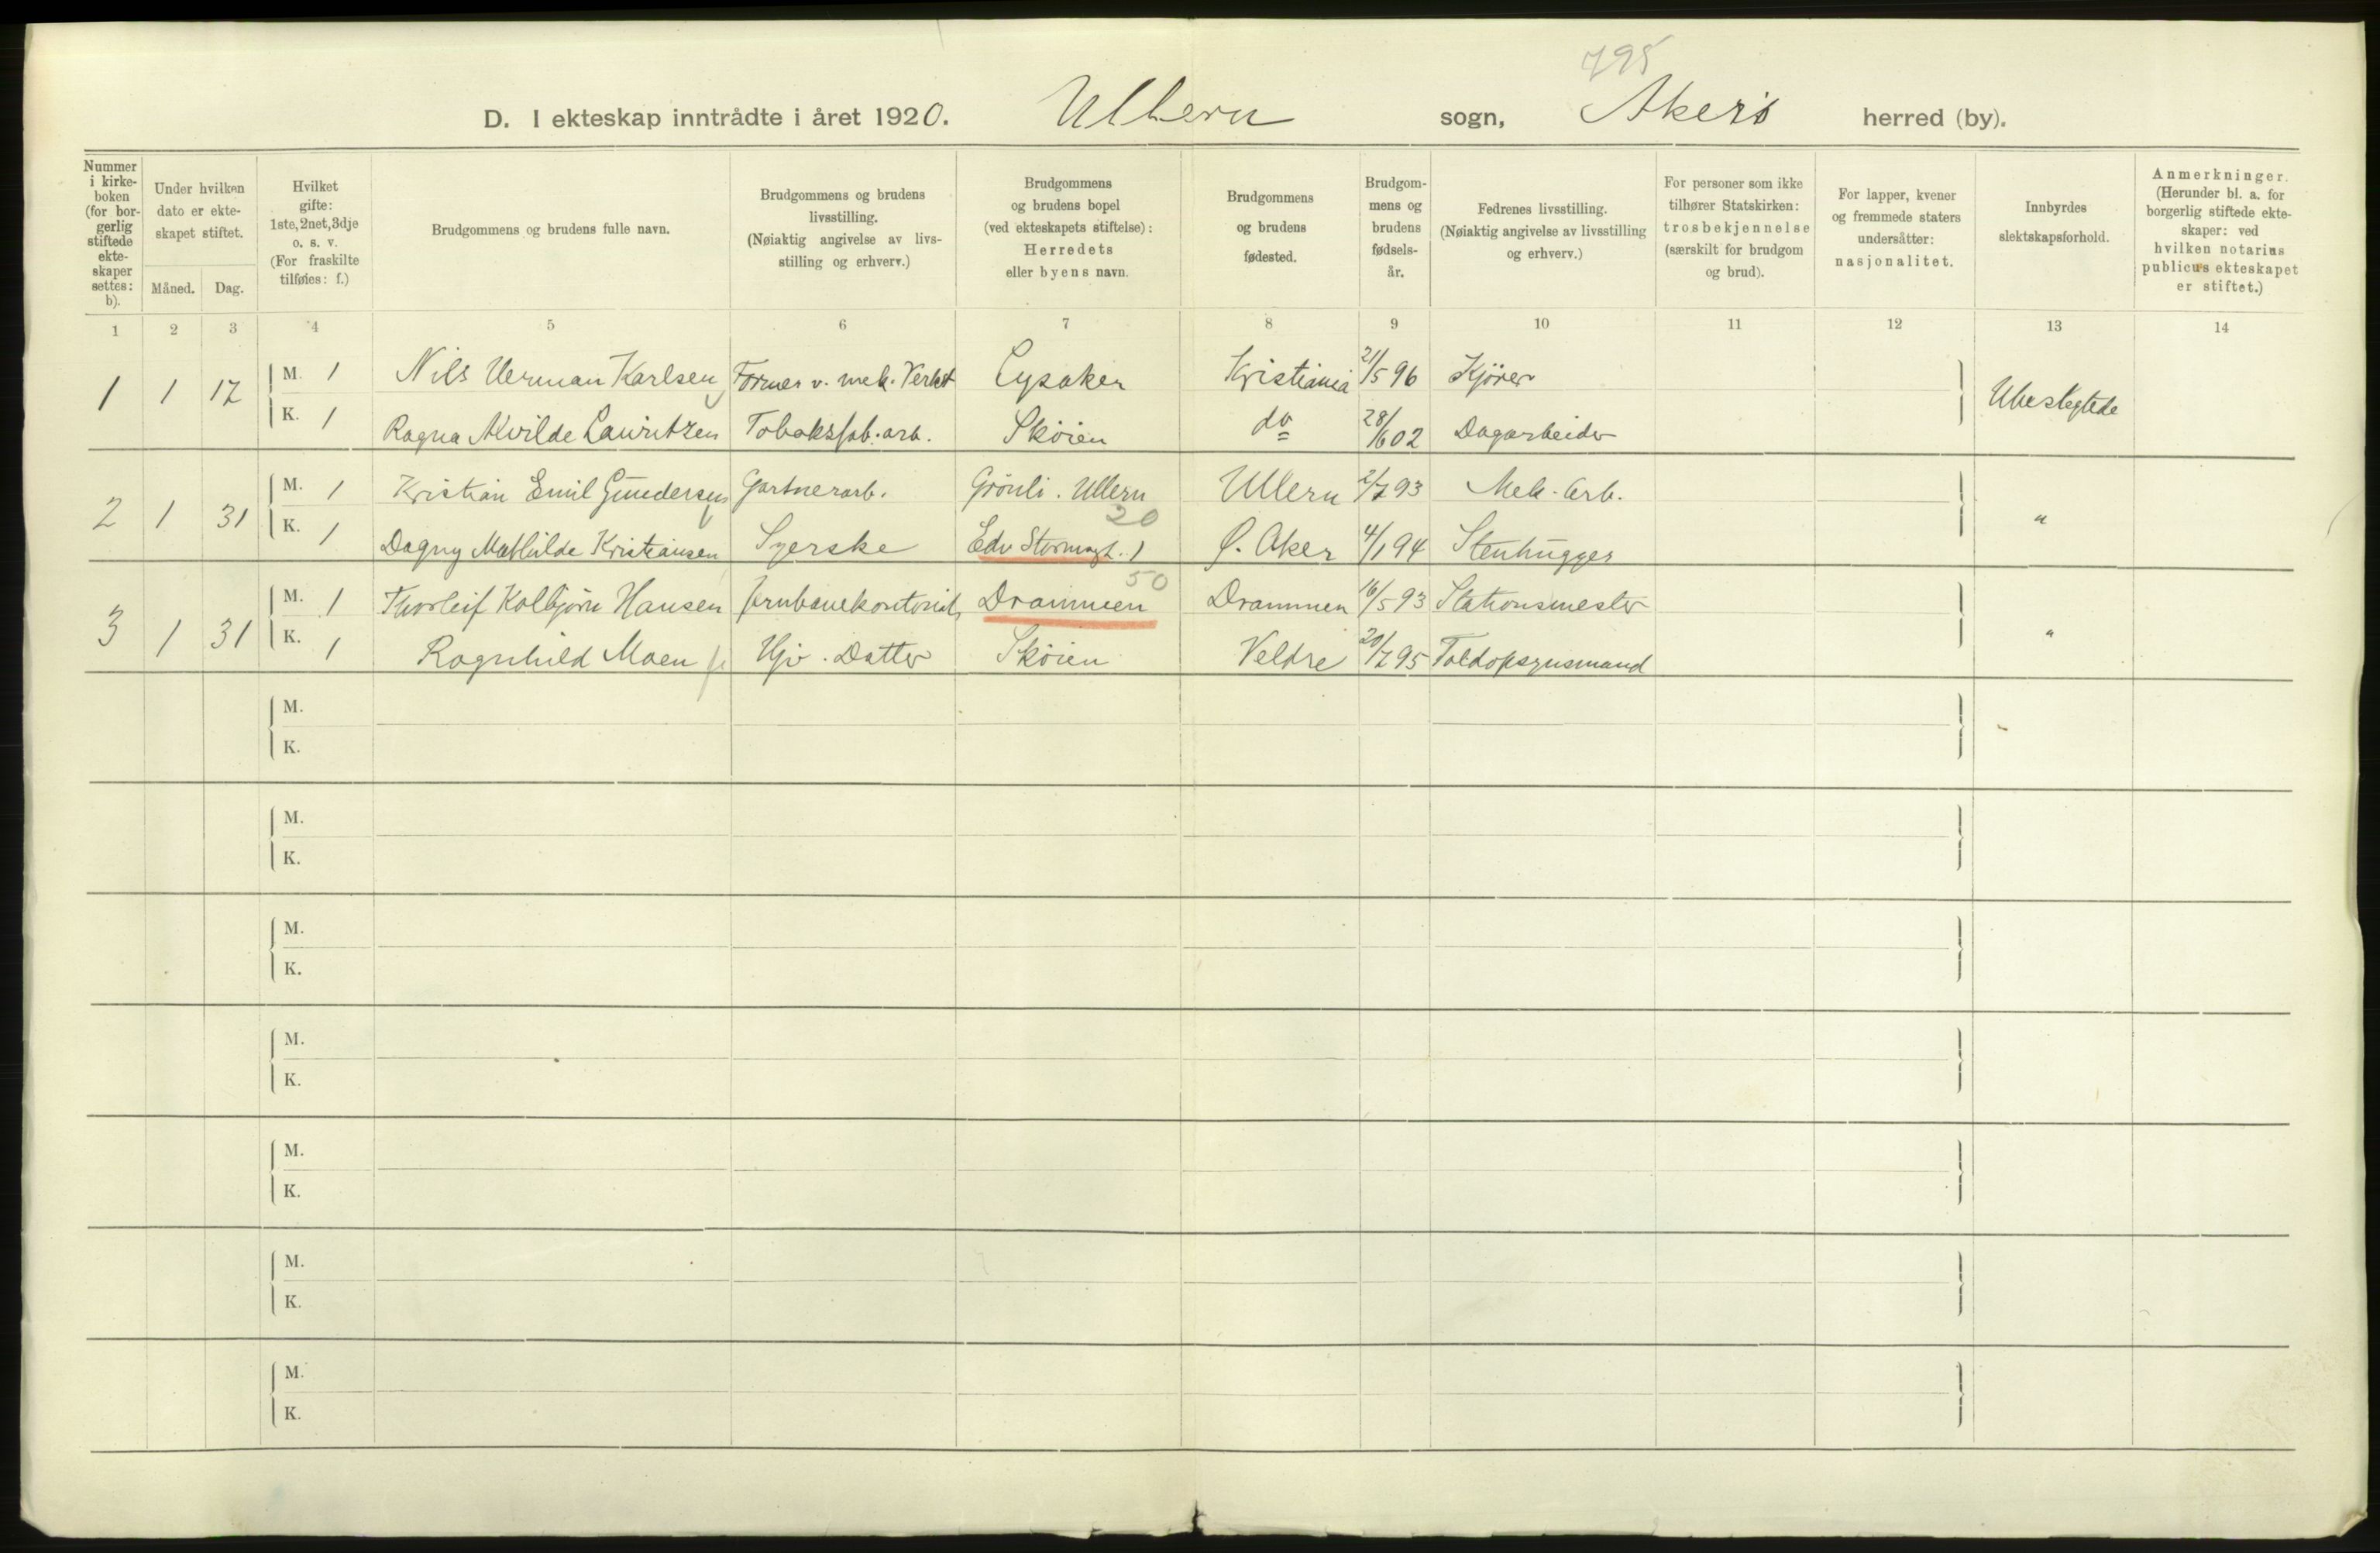 795
D. I ekteskap inntrådte i året 1920. Ullern sogn, Akers herred (by).
Nummer i kirke-boken (for bor-gerlig stiftede ekte-skaper settes: b).
Under hvilken dato er ekte-skapet stiftet.
Måned. Dag.
Hvilket gifte: 1ste, 2net, 3dje o. s. v. (For fraskilte tilføies: f.)
Brudgommens og brudens fulle navn.
Brudgommens og brudens livsstilling. (Nøiaktig angivelse av livs-stilling og erhverv.)
Brudgommens og brudens bopel (ved ekteskapets stiftelse): Herredets eller byens navn.
Brudgommens og brudens fødested.
Brudgom-mens og brudens fødsels-år.
Fedrenes livsstilling. (Nøiaktig angivelse av livsstilling og erhverv.)
For personer som ikke tilhører Statskirken: trosbekjennelse (særskilt for brudgom og brud).
For lapper, kvener og fremmede staters undersåtter: nasjonalitet.
Innbyrdes slektskapsforhold.
Anmerkninger. (Herunder bl. a. for borgerlig stiftede ekte-skaper: ved hvilken notarius publicus ekteskapet er stiftet.)
1 2 3 4 5 6 7 8 9 10 11 12 13 14
1 1 17 M. 1 Nils Herman Karlsen Former v. mek. Verkst Lysaker Kristiania 21/5 96 Kjörer Ubeslegtede
K. 1 Ragna Alvilde Lauritzen Tobaksfab. arb. Sköien do 28/6 02 Dagarbeider
2 1 31 M. 1 Kristian Emil Gundersen Gartnerarb. Grönli. Ullern Ullern 2/7 93 Mek. Arb. "
20
K. 1 Dagny Mathilde Kristiansen Syerske Edv Stormsgt. 1 Ø. Aker 4/1 94 Stenhugger
50
3 1 31 M. 1 Thorleif Kolbjörn Hansen Jernbanekontorist Drammen Drammen 16/5 93 Stationsmester "
K. 1 Ragnhild Moen Hjv. Datter Sköien Veldre 20/7 95 Toldopsynsmand
M.
K.
M.
K.
M.
K.
M.
K.
M.
K.
M.
K.
M.
K.